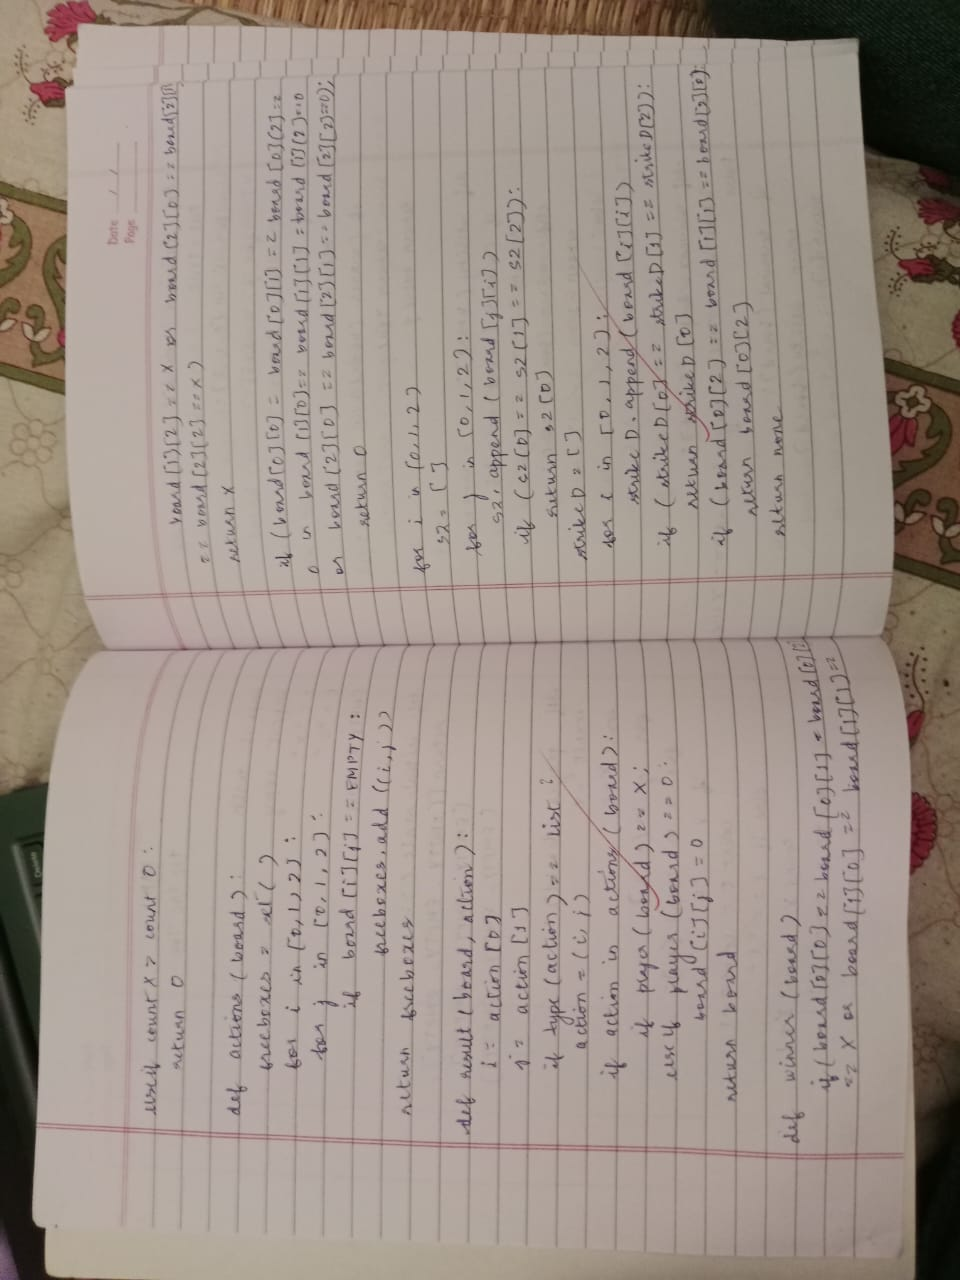 elseif count X > count O :
return O
def actions (board) :
freeboxes = set ( )
for i in [0, 1, 2] :
for j in [0, 1, 2] :
if board [i][j] == EMPTY :
freeboxes. add ((i, j))
return freeboxes
def result (board, action) :
i = action [0]
j = action [1]
if type (action) == list :
action = (i, j)
if action in actions (board) :
if player (board) == X ;
else if player (board) == 0 :
board [i][j] = 0
return board
def winner (board)
if (board [0][0] == board [0][1] = board [0][
== X or board [i][0] == board [1][1] ==
Date / /
Page
board [i][2] == X or board [2][0] == board[2][1]
== board [2][2] == X)
return X
if (board[0][0] = board [0][i] = = board [0][2] ==
0 in board [1][0] == board [i][1] = board [i][2] ==0
or board [2][0] == board [2][i] == board [2][2]==0);
return 0
for i in [0, 1, 2)
s2 = [ ]
for j in [0, 1, 2] :
s2. append (board [j][i])
if (s2 [0] == s2 [1] == s2 [2]) :
return s2 [0]
strike D = [ ]
for i in [0, 1, 2] :
strike D. append (board [i][i])
if (strike D[0] == strike D [1] == strike D[2]) :
return strike D [0]
if (board [0][2] == board [1][1] == board[2][0]) :
return board [0][2]
return none